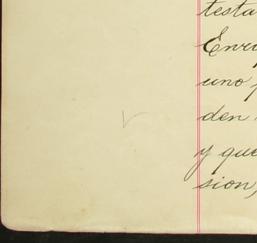 testa
Enri
uno
den
y que
sion,